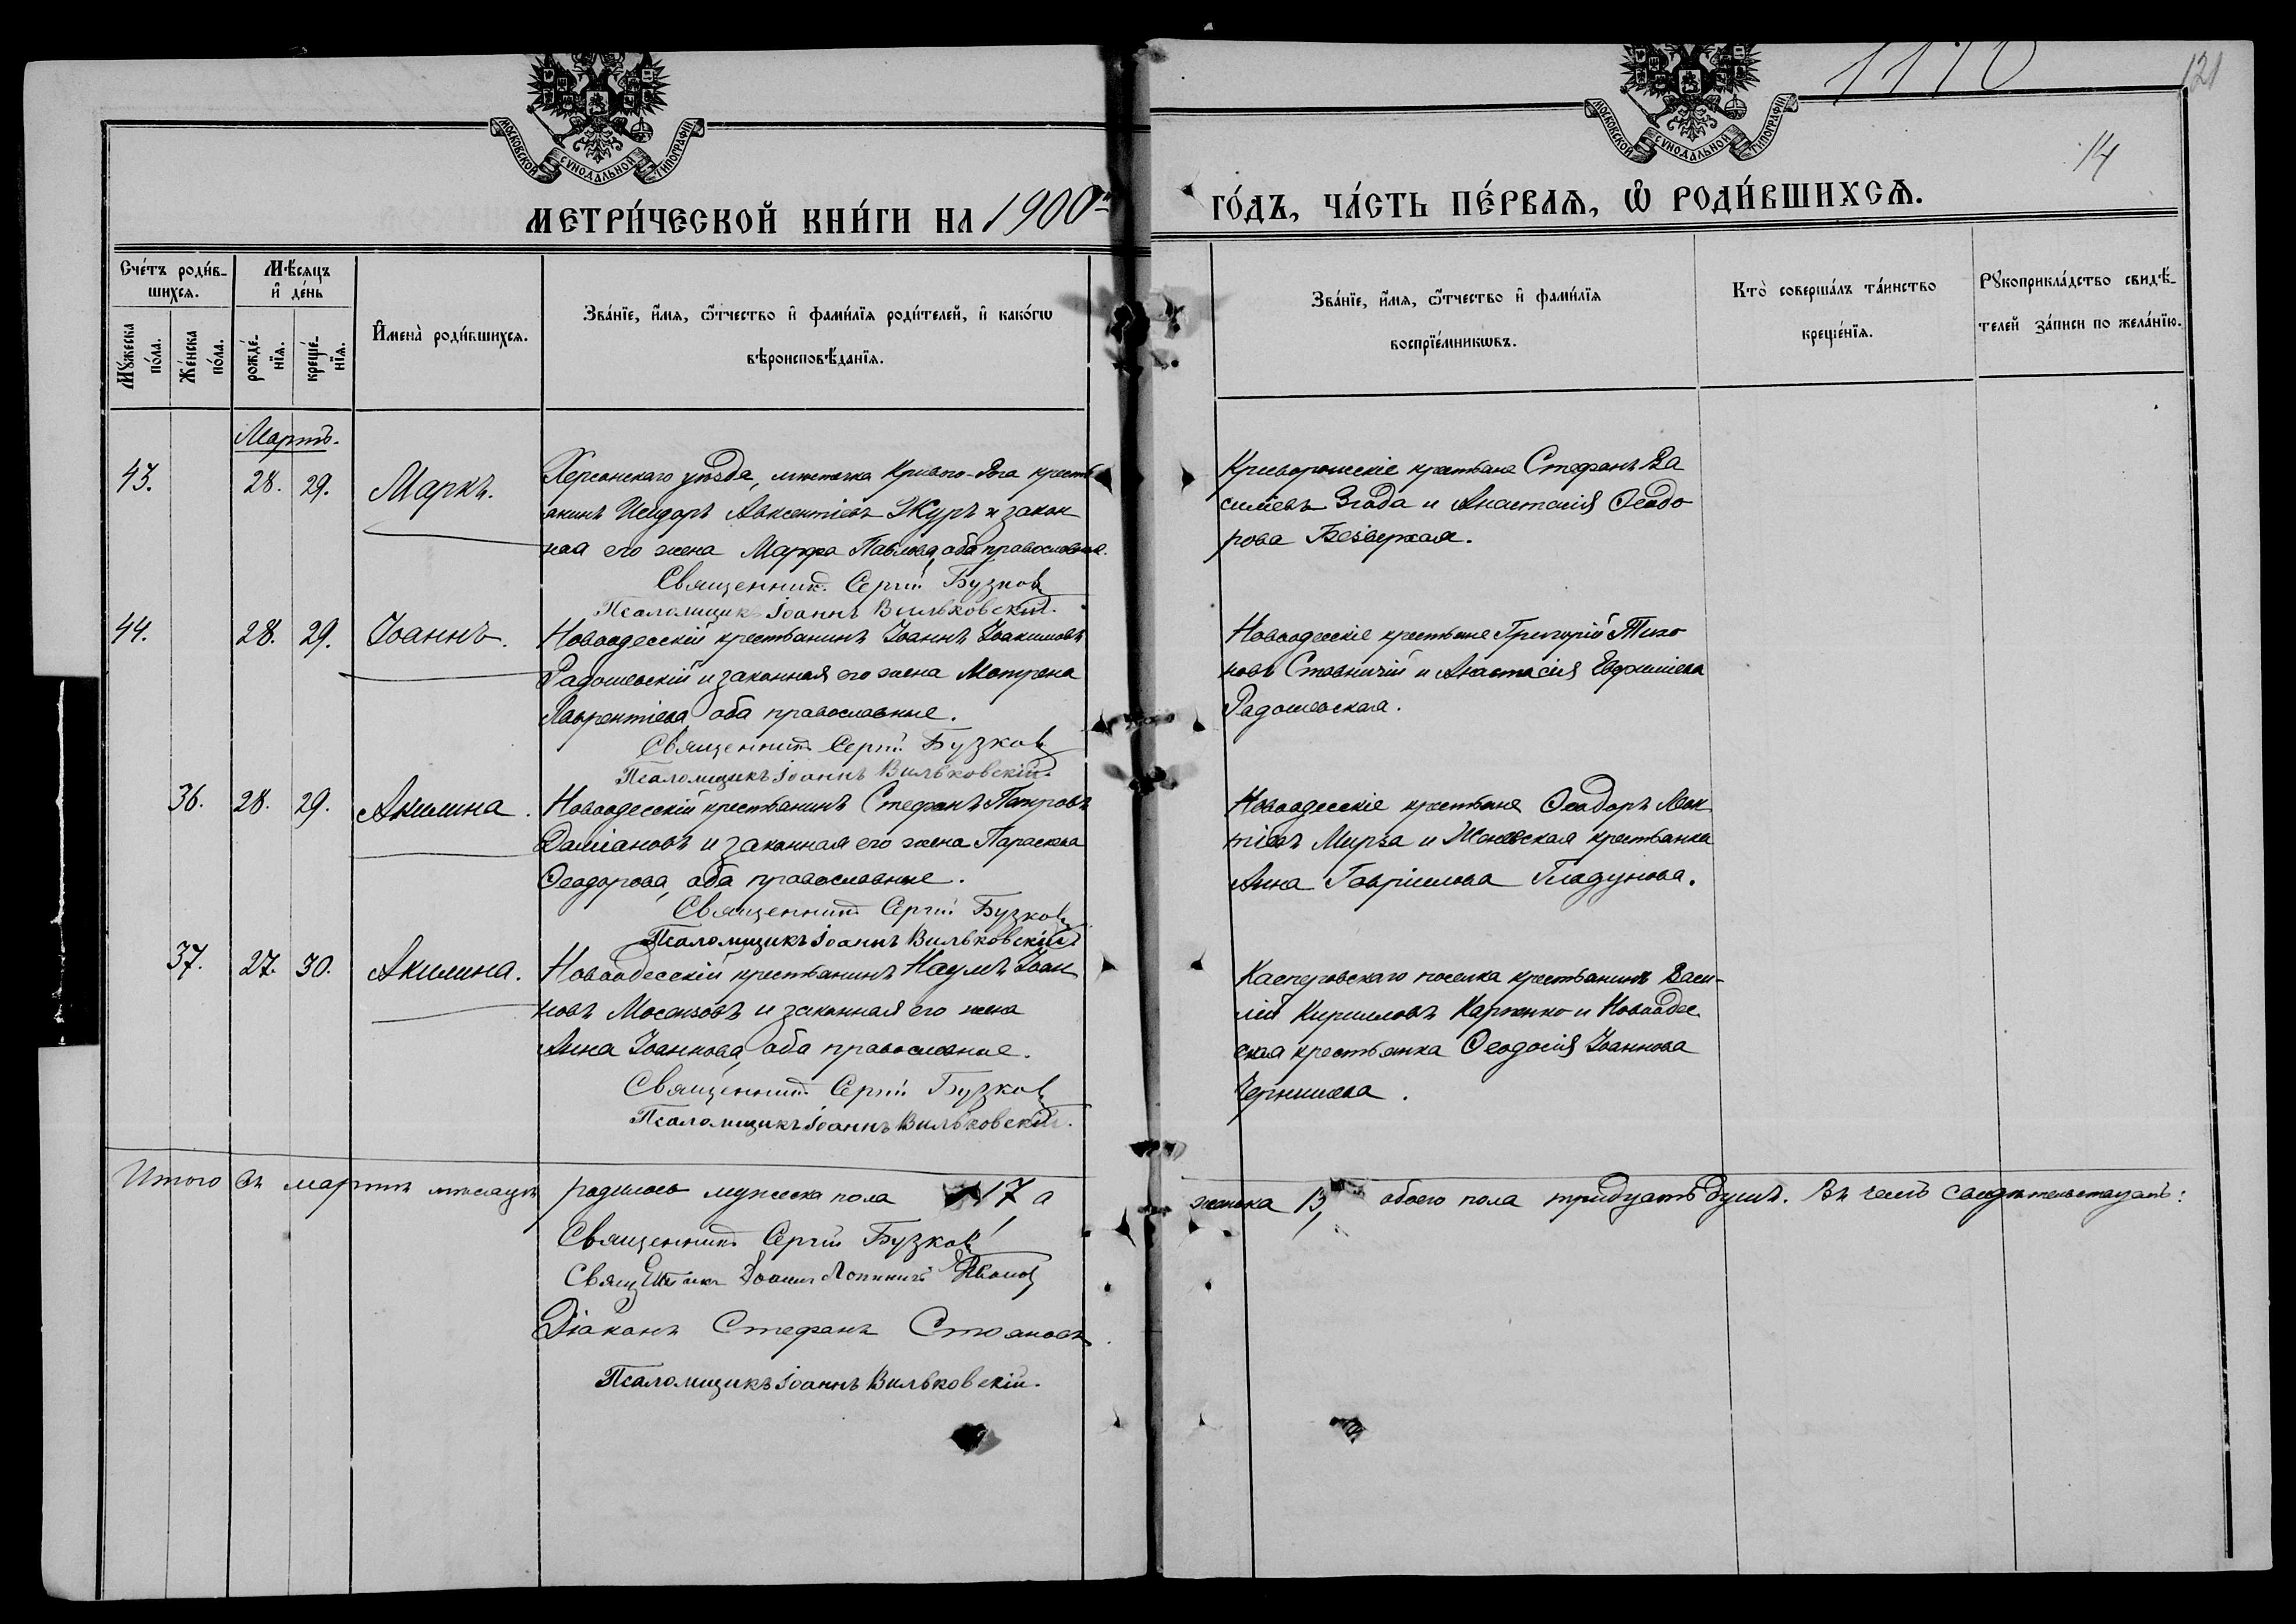 1170
121
14
МОСКОВСКОЙ СѴНОДАЛЬНОЙ ТИПОГРАФІИ
МОСКОВСКОЙ СѴНОДАЛЬНОЙ ТИПОГРАФІИ
МЕТРИ́ЧЕСКОЙ КНИ́ГИ НА 1900й
ГО́ДЪ, ЧА́СТЬ ПЕ́РВАѦ, Ѽ РОДИ́ВШИХСѦ.
Сче́тъ роди́в-
шихсѧ.
Мѣ́сѧцъ
и҆ де́нь
Мꙋ́жеска по́ла.
Же́нска по́ла.
рожде́-
нїѧ.
креще́-
нїѧ.
И҆мена̀ роди́вшихсѧ.
Зва́нїе, и҆́мѧ, ѻ҆́тчество и҆ фами́лїѧ роди́телей, и҆ како́гѡ
вѣроисповѣ́данїѧ.
Зва́нїе, и҆́мѧ, ѻ҆́тчество и҆ фами́лїѧ
воспрїе́мникѡвъ.
Кто̀ соверша́лъ та́инство
креще́нїѧ.
Рꙋкоприкла́дство свидѣ́-
телей за́писи по жела́нїю.
Мартъ.
43. 28. 29. Маркъ.
Херсонскаго уѣзда, мѣстечка Кривого-Рога кресть
янинъ Исидоръ Авксентіевъ Журъ и закон
ная его жена Марфа Павлова, оба православные.
Священникъ Сергій Бузков
Псаломщикъ Іоаннъ Вильковскій.
Криворожскіе крестьяне Стефанъ Ва
силіевъ Згода и Анастасія Ѳеодо
рова Безверхая.
44. 28. 29. Іоаннъ.
Новоодесскій крестьянинъ Іоаннъ Іоакимовъ
Радошевскій и законная его жена Матрена
Лаврентіева, оба православные.
Священникъ Сергій Бузков
Псаломщикъ Іоаннъ Вильковскій.
Новоодесскіе крестьяне Григорій Тихо
новъ Ставничій и Анастасія Евфиміева
Радошевская.
36. 28. 29. Акилина.
Новоодесскій крестьянинъ Стефанъ Петровъ
Даміановъ и законная его жена Параскева
Ѳеодорова, оба православные.
Священникъ Сергій Бузков
Псаломщикъ Іоаннъ Вильковскій
Новоодесскіе крестьяне Ѳеодоръ
Мирза и крестьянка
Анна Гавріилова Гладунова.
37. 27. 30. Акилина.
Новоодесскій крестьянинъ Наумъ Іоан
новъ Мосензовъ и законная его жена
Анна Іоаннова, оба православные.
Священникъ Сергій Бузков
Псаломщикъ Іоаннъ Вильковскій.
Касперовскаго поселка крестьянинъ Васи-
лій Кирилловъ Карпенко и Новоодес
ская крестьянка Ѳеодосія Іоаннова
Чернышева.
Итого въ мартѣ мѣсяцѣ родилось мужеска пола 17 а
женска 13, обоего пола тридцать душъ. Въ чемъ свидѣтельствуютъ:
Священникъ Сергій Бузков
Священникъ Іоаннъ
Діаконъ Стефанъ Стояновъ
Псаломщикъ Іоаннъ Вильковскій.